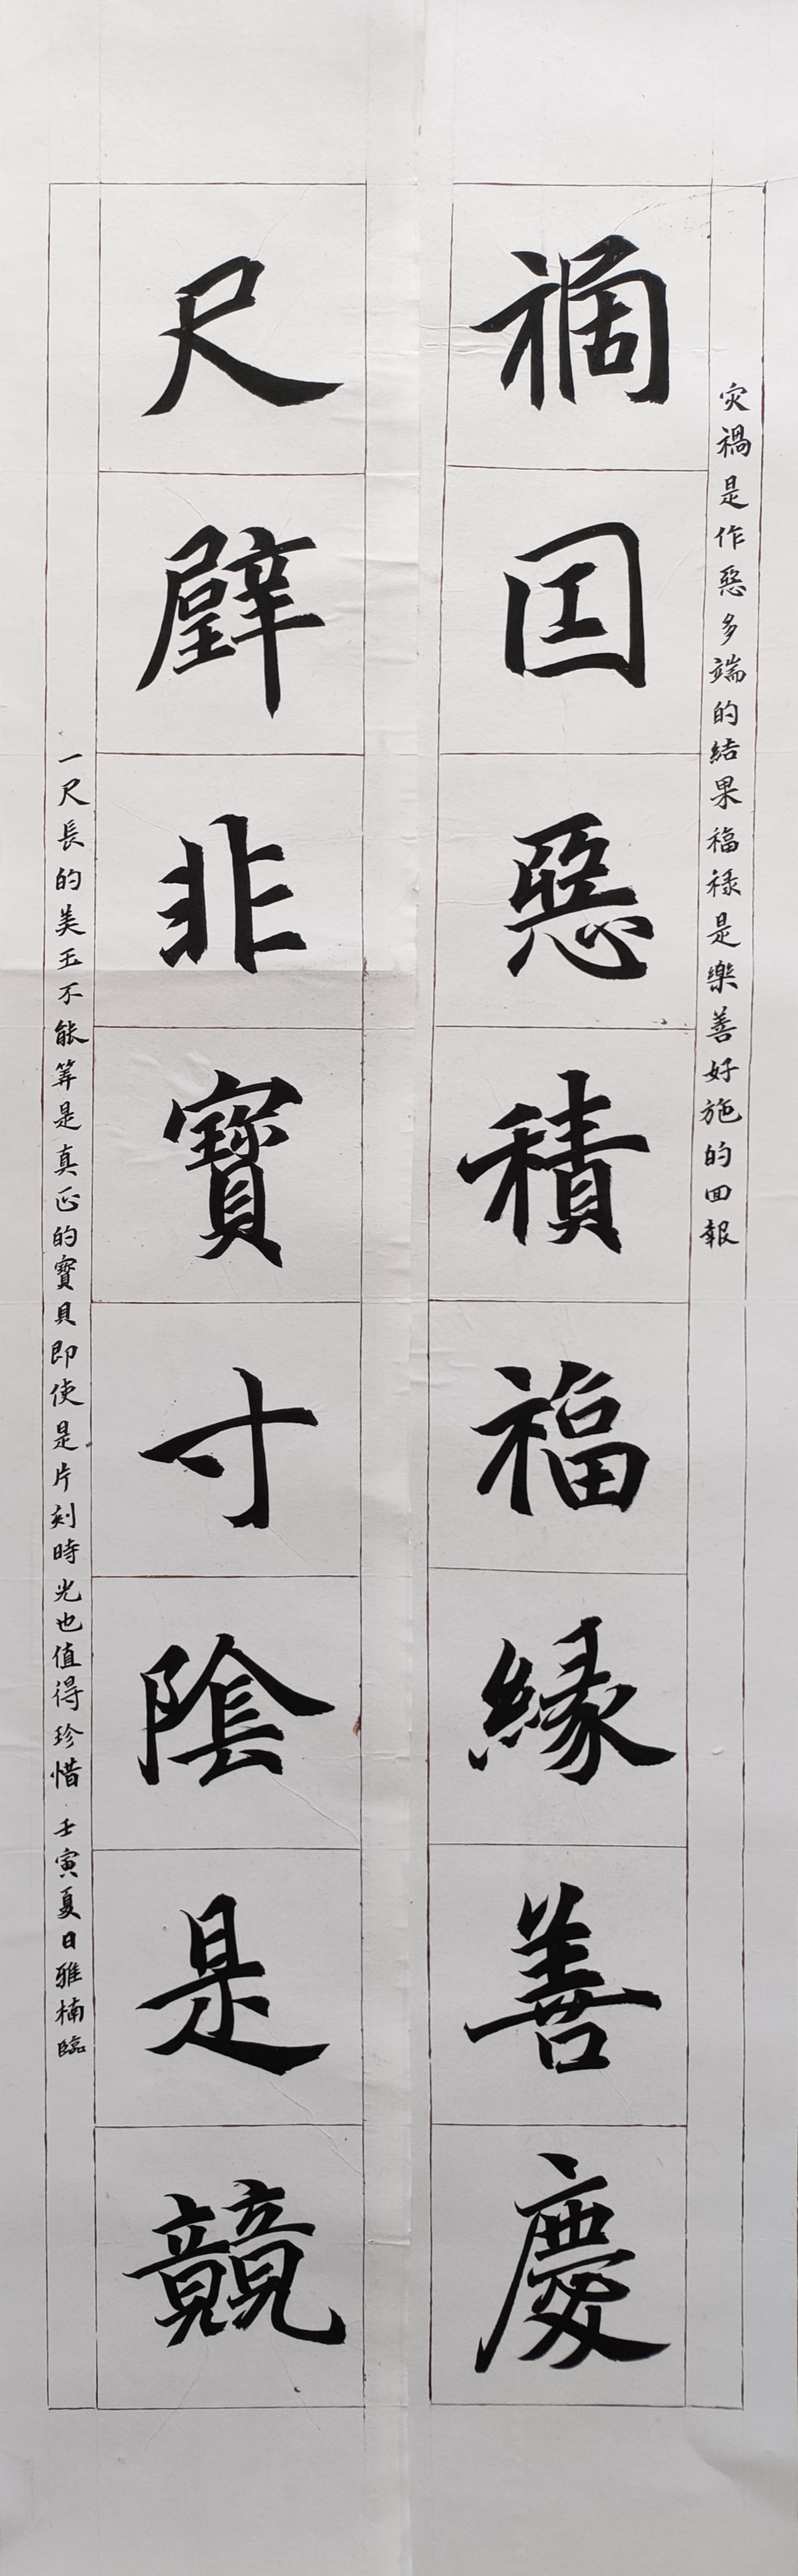 灾禍是作惡多端的結果福禄是樂善好施的回報
禍因惡積福緣善慶
尺璧非寶寸陰是競
一尺長的美玉不能算是真正的寶貝即使是片刻時光也值得珍惜壬寅夏日雅楠臨